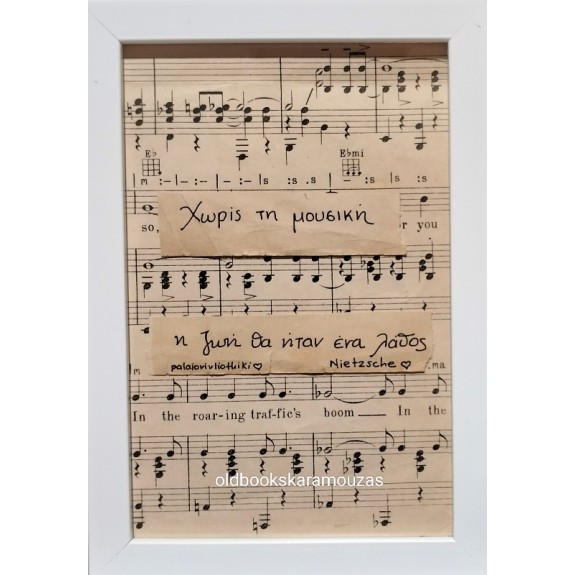 Eb Ebmi
m :-l-:-l-:-ls :s.s l-:s :s
so, r you
Χωρίς τη μουσική
η ζωή θα ήταν ένα λάθος
palaiovivliothiki♡ Nietzsche♡
m .ma
In the roar-ing traf-fic's boom In the
oldbookskaramouzas